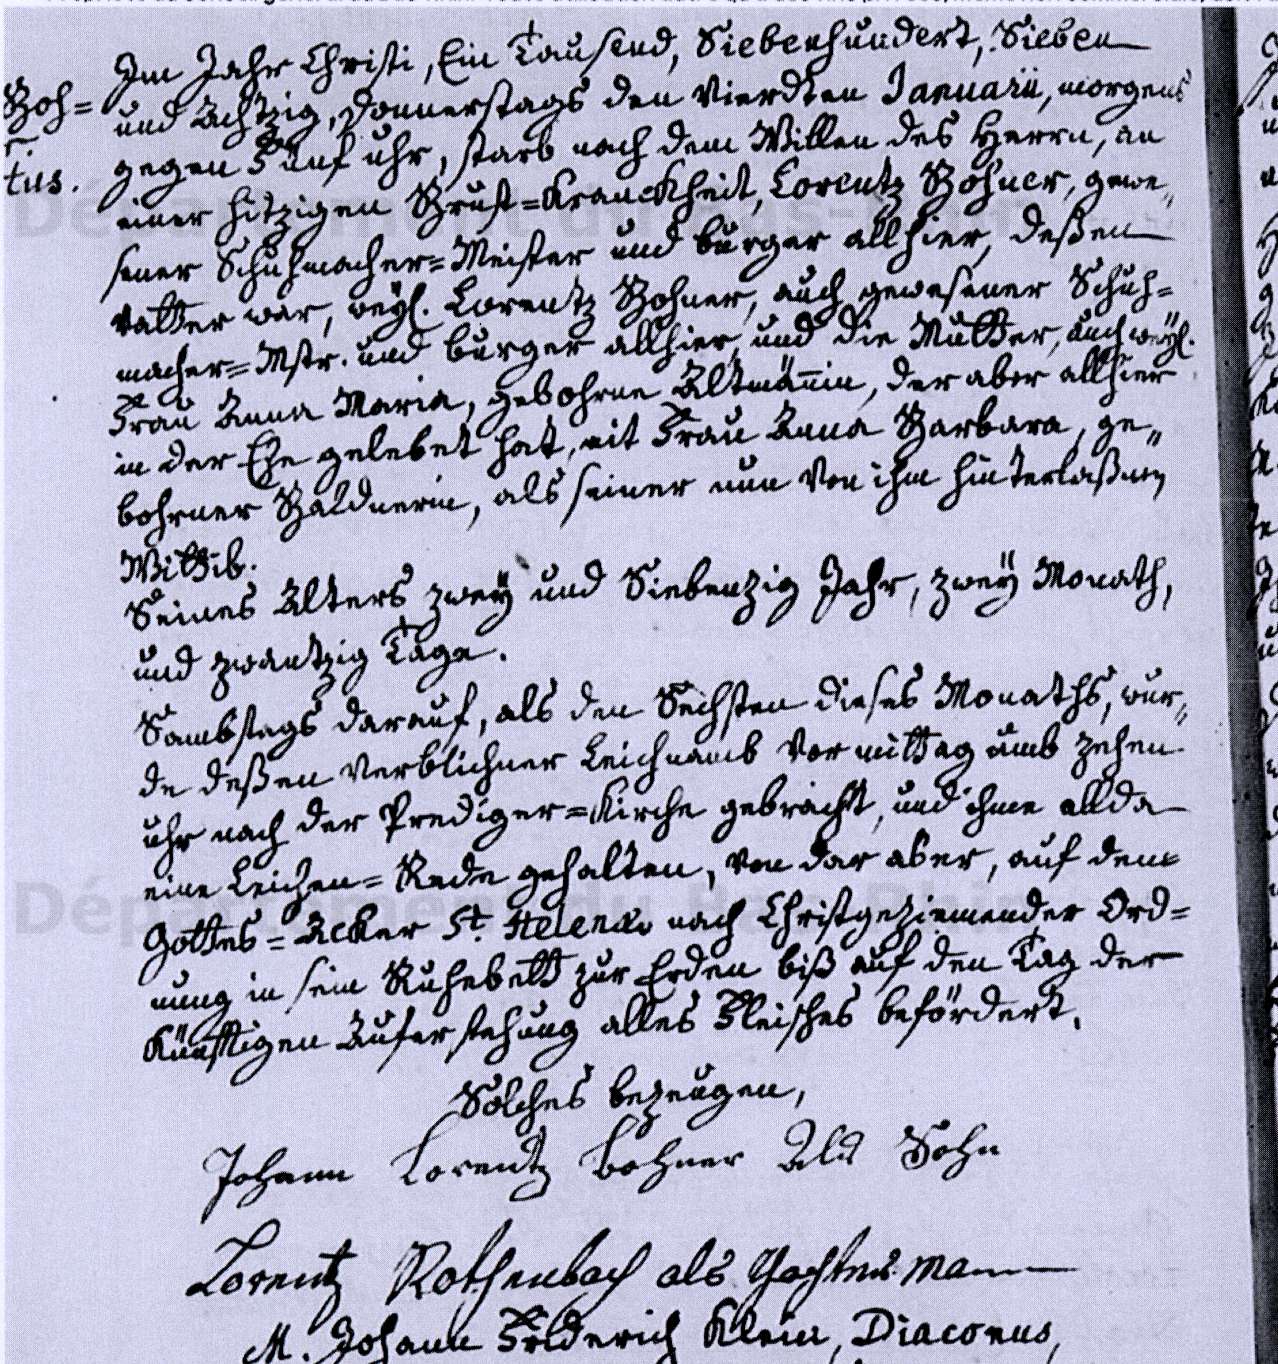 Im Jahr Christi, Ein Tausend, Siebenhundert, Sieben
Boh=
und Achtzig, Donnerstags den Vierdten Januarii, morgens
tus.
gegen Fünf uhr, starb nach dem Willen des Herrn, an
einer hitzigen Brust=Kranckheit, Lorentz Bohner, gewe„
sener Schuhmacher=Meister und burger allhier, deßen
Vatter war, weyl. Lorentz Bohner, auch gewesener Schuh=
macher=Mstr. und burger allhier, und die Mutter, auch weyl.
Frau Anna Maria, gebohrne Altmännin, der aber allhier
in der Ehe gelebet hat, mit Frau Anna Barbara, ge„
bohrner Baldnerin, als seiner nun Von ihm hinterlaßnen
Wittib.
Seines Alters zweÿ und Siebenzig Jahr, zweÿ Monath,
und zwantzig Tage.
Sambstags darauf, als den Sechsten dieses Monaths, wur„
de deßen Verblichner Leichnamb Vormittag umb zehen
uhr nach der Prediger=Kirche gebracht, und ihme allda
eine Leichen=Rede gehalten, Von dar aber, auf dem
Gottes=Acker St. Helenae nach Christgeziemender Ord=
nung in sein Ruhebett zur Erden biß auf den Tag der
Künfftigen Auferstehung alles Fleisches befördert.
Solches bezeugen,
Johann Lorentz Bohner Als Sohn
Lorentz Rothenbach als Tochtermann
M. Johann Friderich Klein, Diaconus,